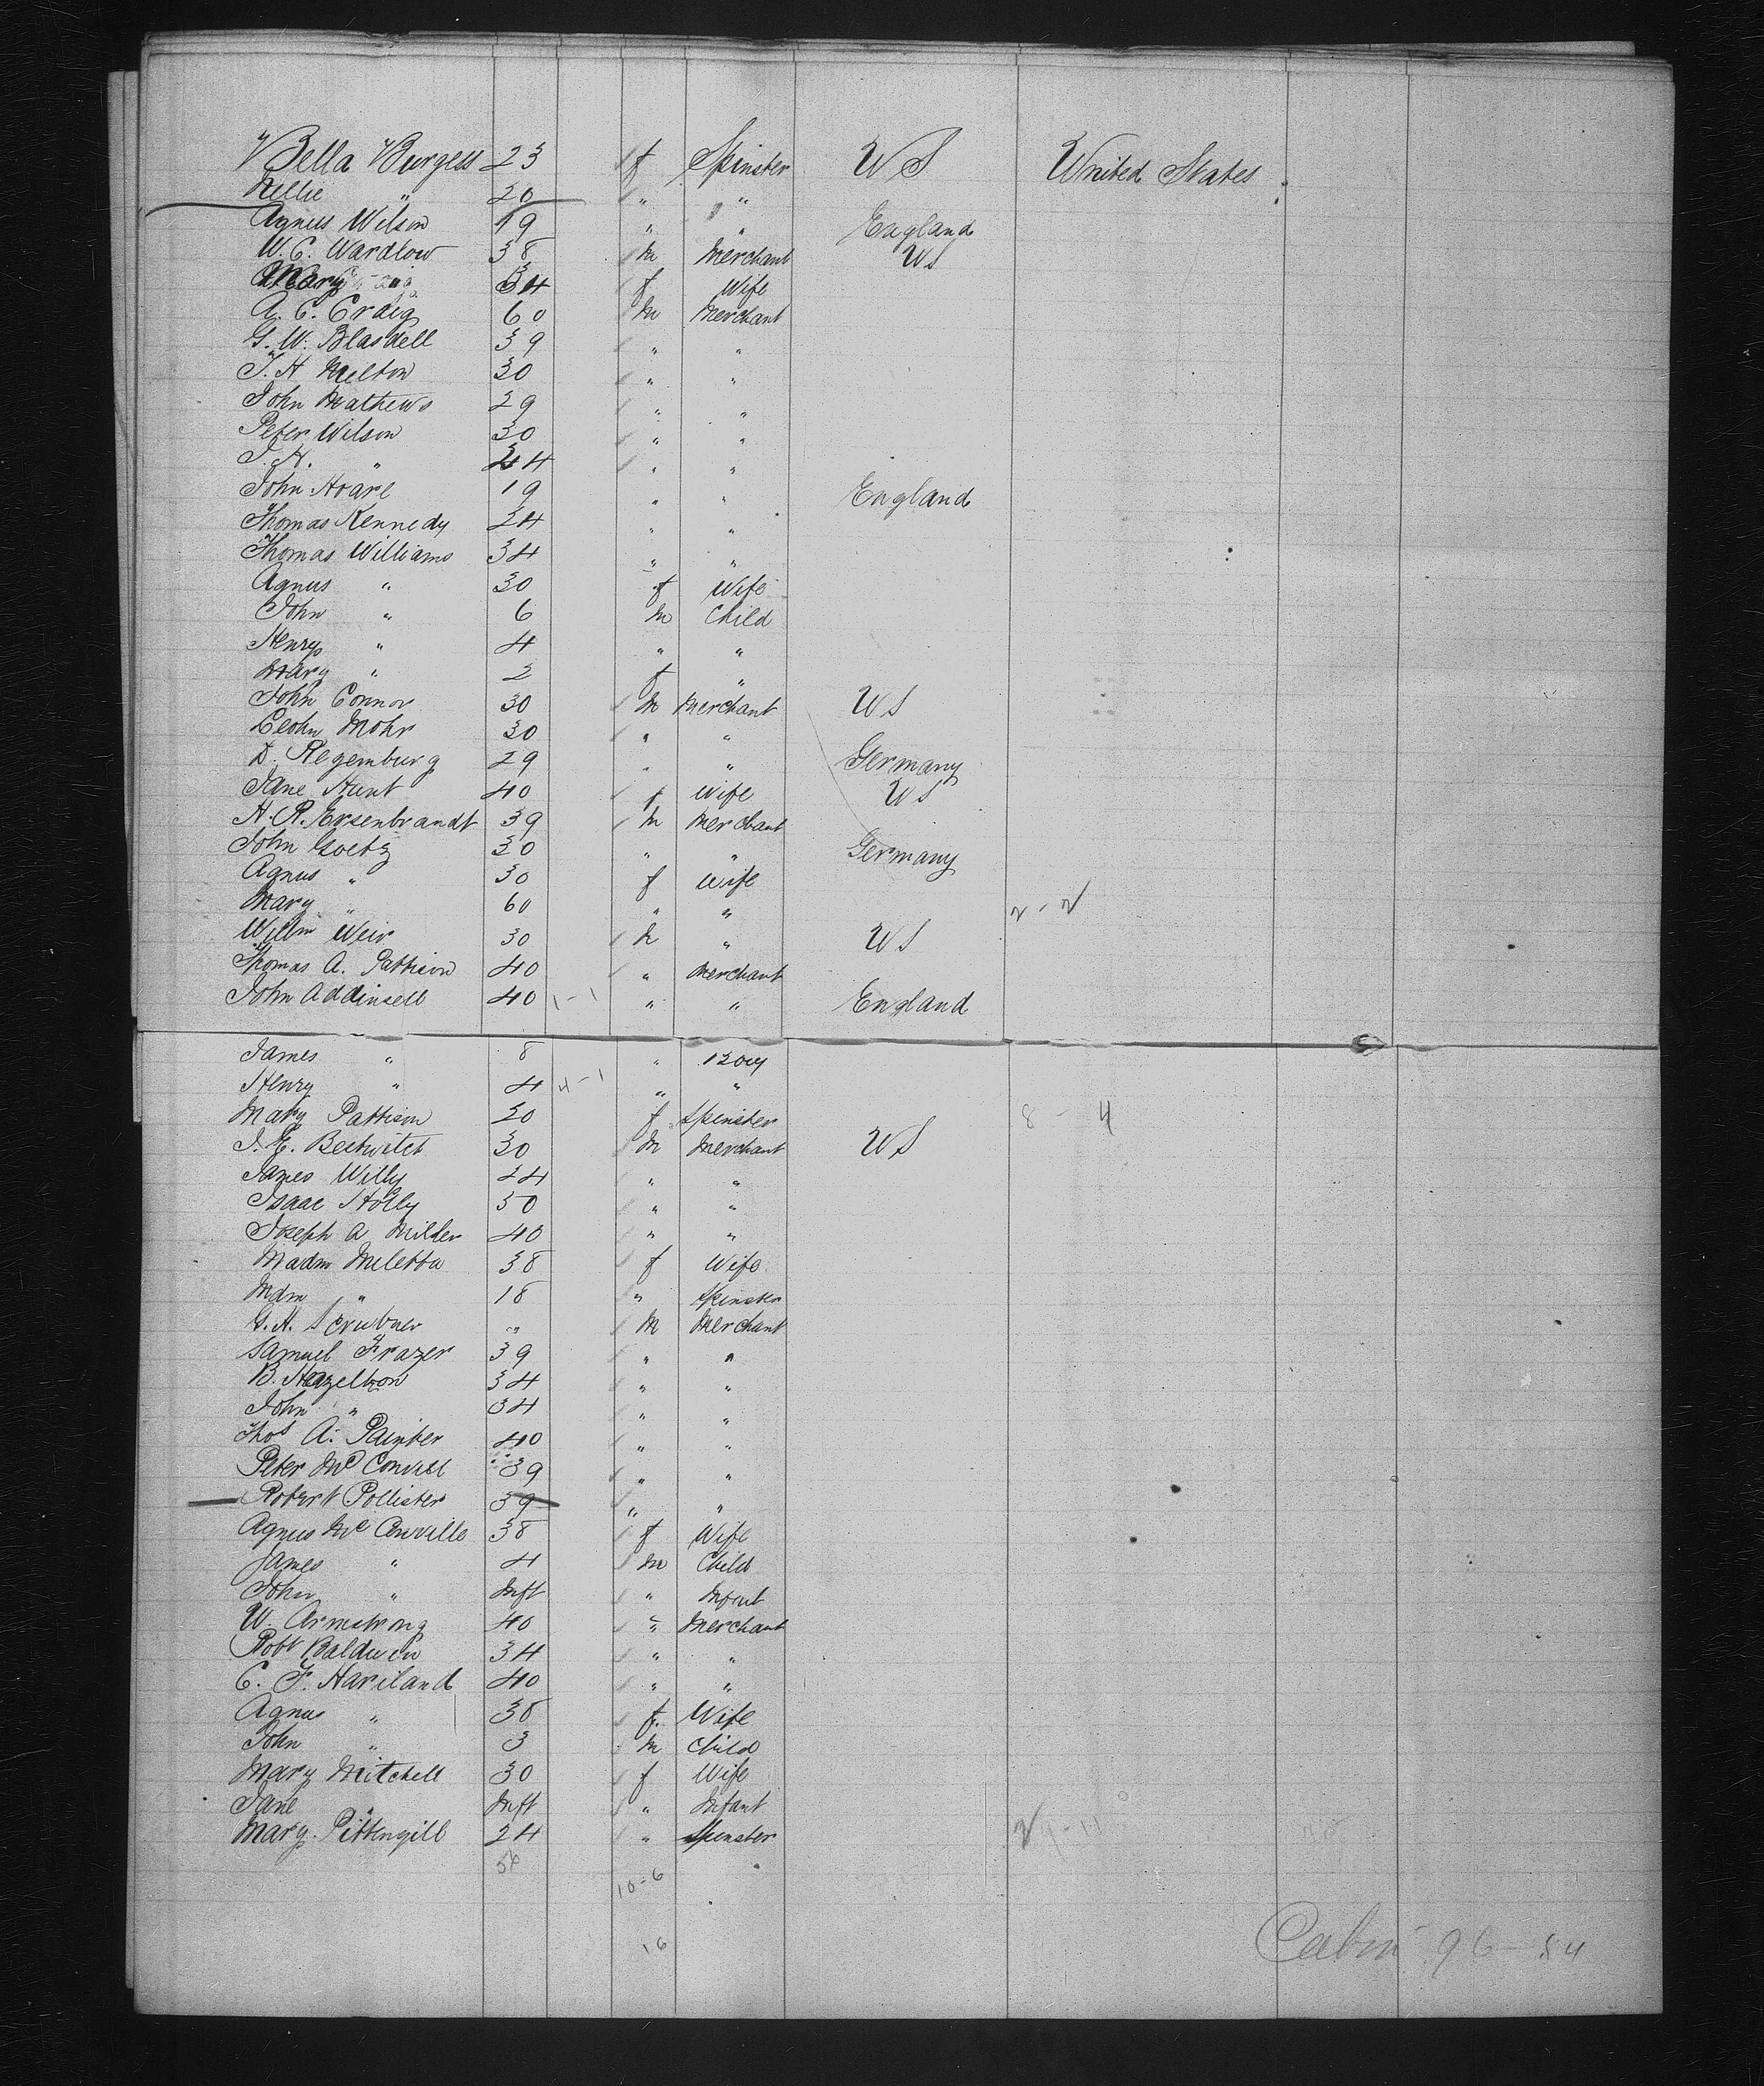 Bella Burgess 23 f Spinster US United States
Nellie " 20 " "
Agnus Wilson 19 " " England
W. C. Wardlow 38 m Merchant US
Mary 34 f Wife
A. C. Craig 60 m Merchant
G. W. Blasdell 39 " "
T. H Milton 30 " "
John Mathews 29 " "
Peter Wilson 30 " "
J. H. " 44 " "
John Hoare 19 " " England
Thomas Kennedy 24 " "
Thomas Williams 34 " "
Agnus " 30 f Wife
John " 6 m Child
Henry " 4 " "
Mary " 2 f "
John Connor 30 m Merchant US
Mohr 30 " "
D. Regemburg 29 " " Germany
Jane Hunt 40 f Wife US
H. R. Ersenbrandt 39 m Merchant
John Goetz 30 " " Germany
Agnus " 30 f Wife
Mary " 60 " "
Willm Weir 30 m " US
Thomas A. Pattison 40 " Merchant
John Addinsell 40 1-1 " " England
James " 8 " Boy
Henry " 4 4-1 " "
Mary Pattison 20 f Spinster 8-4
J. E. Beckwitch 30 m Merchant US
James Willy 24 " "
Isaac Holly 50 " "
Joseph A Miller 40 " "
Madm Miletta 38 f Wife
Mdm " 18 " Spinster
G. H. Scrubner " m Merchant
Samuel Frazer 39 " "
B. Hazelton 34 " "
John " 34 " "
Thos A. Painter 40 " "
Peter Mc Convill 39 " "
Robert Pollister 39 " "
Agnus Mc Conville 38 f Wife
James " 4 m Child
John " Inft " Infant
W. Armstrong 40 " Merchant
Robt Baldwin 34 " "
C. F. Hariland 40 " "
Agnus " 38 f. Wife
John " 3 m Child
Mary Mitchell 30 f Wife
Jane " Inft " Infant
Mary Pittengill 24 " Spinster
10-6
16
Cabin 96-84